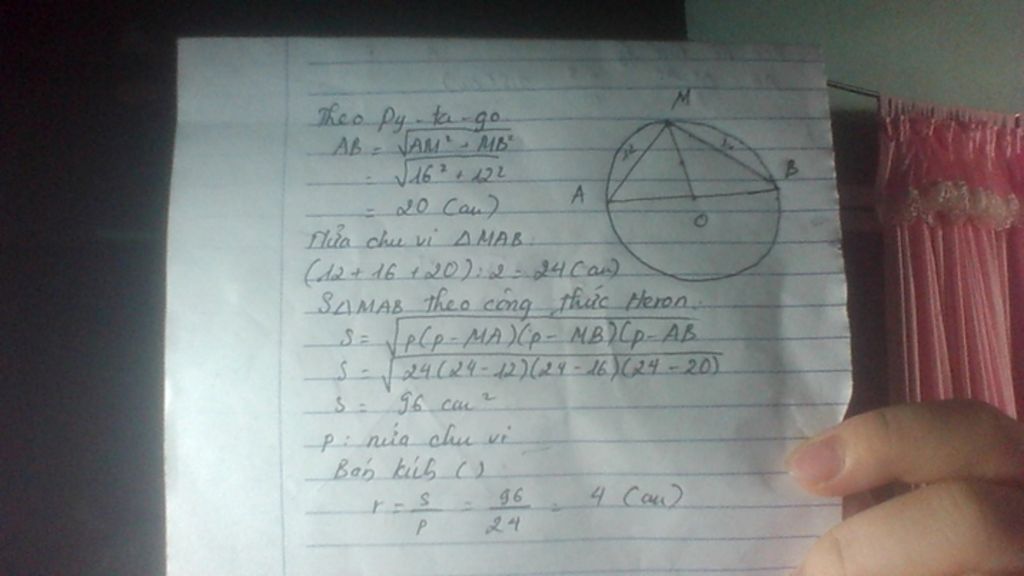 Theo Py-ta-go
AB = √AM² + MB²
= √16² + 12²
= 20 (cm)
Nửa chu vi ΔMAB:
(12 + 16 + 20) : 2 = 24 (cm)
SΔMAB theo công thức Heron:
S = √p(p - MA)(p - MB)(p - AB
S = √24(24 - 12)(24 - 16)(24 - 20)
S = 96 cm²
p : nửa chu vi
Bán kính ( )
r = S/p = 96/24 = 4 (cm)
M
12
A
B
O